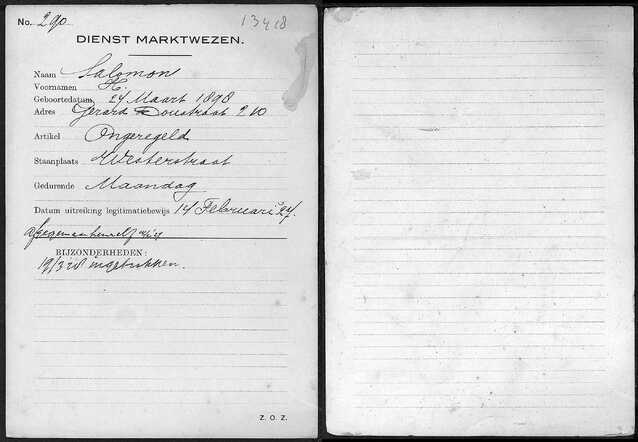 No. 290. 13418
DIENST MARKTWEZEN.
Naam Salomons
Voornamen H.
Geboortedatum, 24 Maart 1898
Adres Gerard Doustraat 210
Artikel Ongeregeld
Staanplaats Westerstraat
Gedurende Maandag
Datum uitreiking legitimatiebewijs 14 Februari '27.
BIJZONDERHEDEN:
19/3 28 ingetrokken.
Z. O. Z.